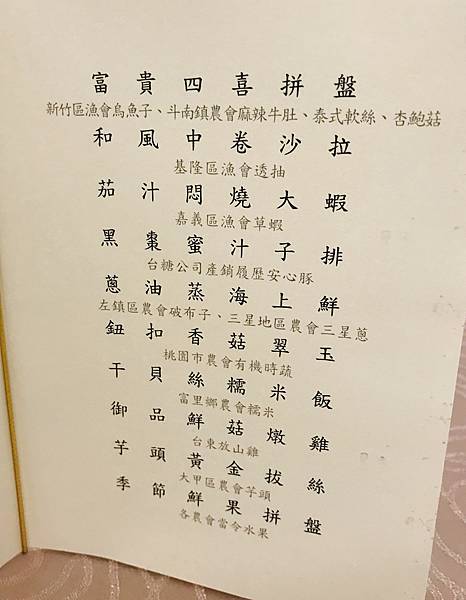 富貴四喜拼盤
新竹區漁會烏魚子、斗南鎮農會麻辣牛肚、泰式軟絲、杏鮑菇
和風中卷沙拉
基隆區漁會透抽
茄汁悶燒大蝦
嘉義區漁會草蝦
黑棗蜜汁子排
台糖公司產銷履歷安心豚
蔥油蒸海上鮮
左鎮區農會破布子、三星地區農會三星蔥
鈕扣香菇翠玉
桃園市農會有機時蔬
干貝絲糯米飯
富里鄉農會糯米
御品鮮菇燉雞
台東放山雞
芋頭黃金拔絲
大甲區農會芋頭
季節鮮果拼盤
各農會當令水果